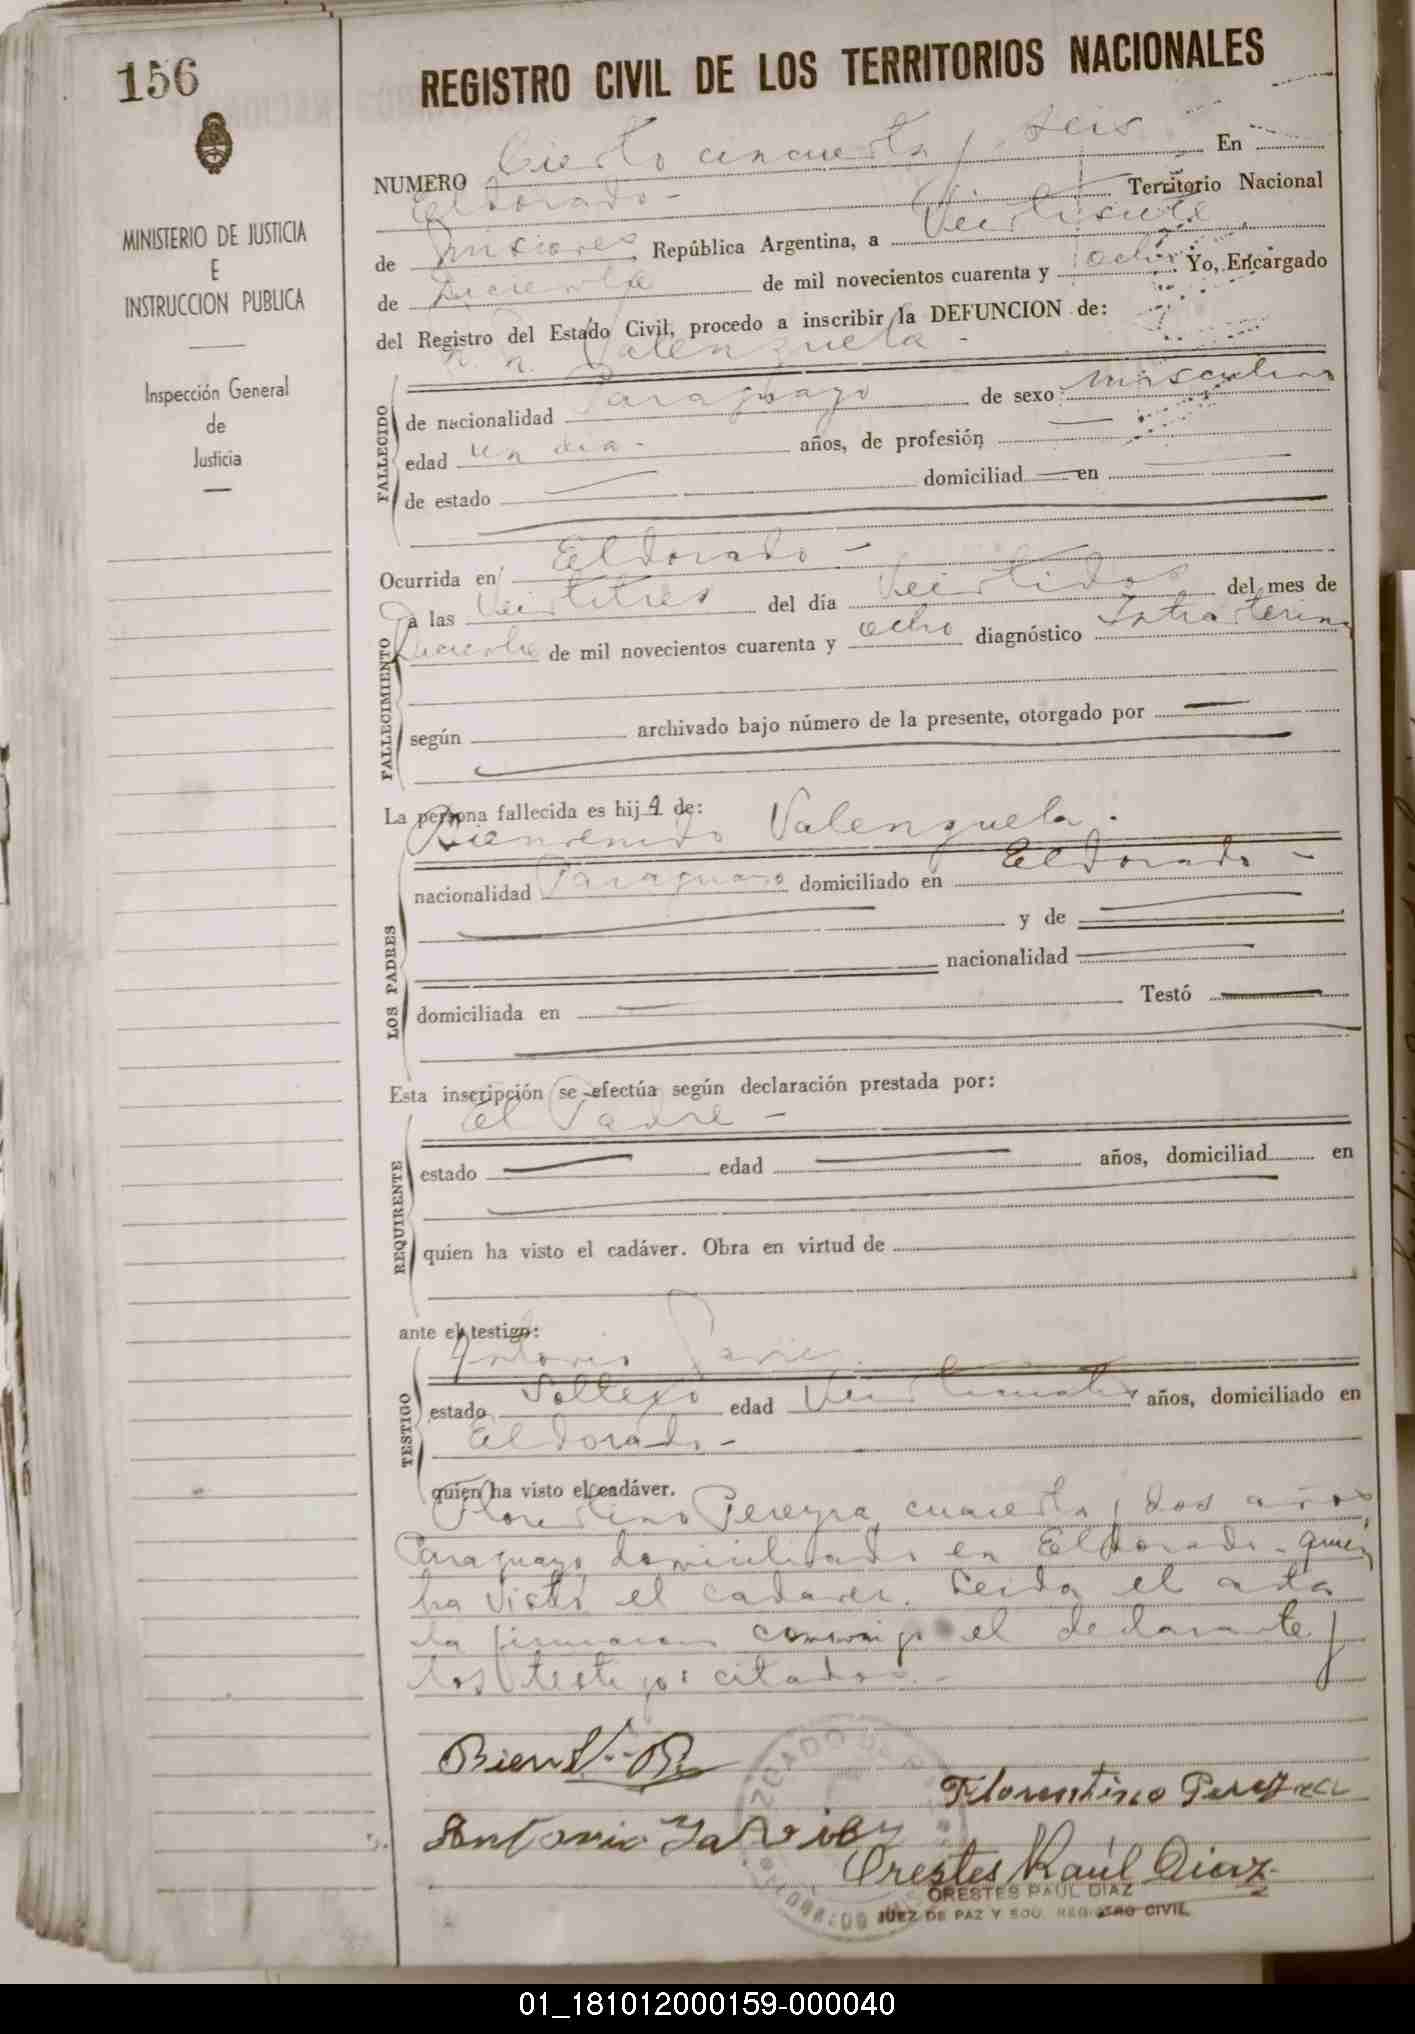 156
MINISTERIO DE JUSTICIA
E
INSTRUCCION PUBLICA
Inspección General
de
Justicia
REGISTRO CIVIL DE LOS TERRITORIOS NACIONALES
NUMERO Ciento cincuenta y seis En
Eldorado - Territorio Nacional
de Misiones República Argentina, a Veintisiete
de Diciembre de mil novecientos cuarenta y ocho Yo, Encargado
del Registro del Estado Civil, procedo a inscribir la DEFUNCION de:
n. n. Valenzuela -
FALLECIDO
de nacionalidad Paraguayo de sexo masculino
edad un dia - años, de profesión
de estado domiciliad en
Ocurrida en Eldorado -
FALLECIMIENTO
a las Veintitres del día Veintidos del mes de
Diciembre de mil novecientos cuarenta y ocho diagnóstico
según archivado bajo número de la presente, otorgado por
La persona fallecida es hij de:
Bienvenido Valenzuela.
LOS PADRES
nacionalidad Paraguayo domiciliado en Eldorado -
y de
nacionalidad
domiciliada en Testó
Esta inscripción se efectúa según declaración prestada por:
El Padre -
REQUIRENTE
estado edad años, domiciliad en
quien ha visto el cadáver. Obra en virtud de
ante el testigo:
Antonio
TESTIGO
estado Soltero edad años, domiciliado en
Eldorado -
quien ha visto el cadáver.
Florentino Pereyra, cuarenta y dos años
Paraguayo domiciliado en Eldorado - quien
ha visto el cadaver. Leida el acta
la firmaron conmigo el declarante y
los testigos citados -
Florentino Pereyra
Antonio
Orestes Raúl Diaz
ORESTES RAUL DIAZ
JUEZ DE PAZ Y REGISTRO CIVIL
01_181012000159-000040